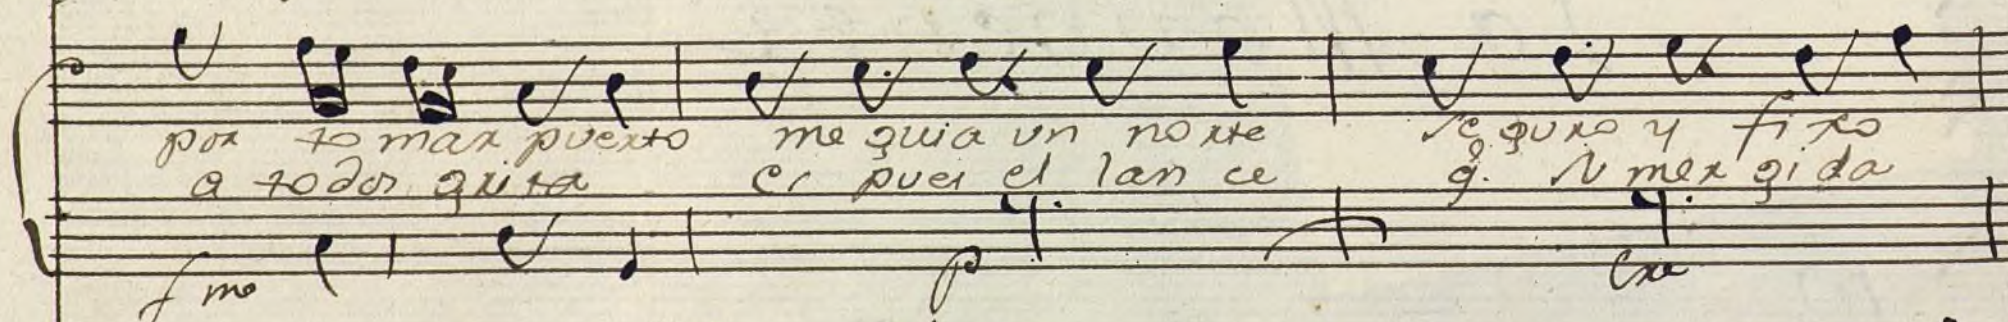 por to mar puerto me guia un norte se guro y fixo
a todos grita es pues el lan ce q. sumer gida
fmo p cre